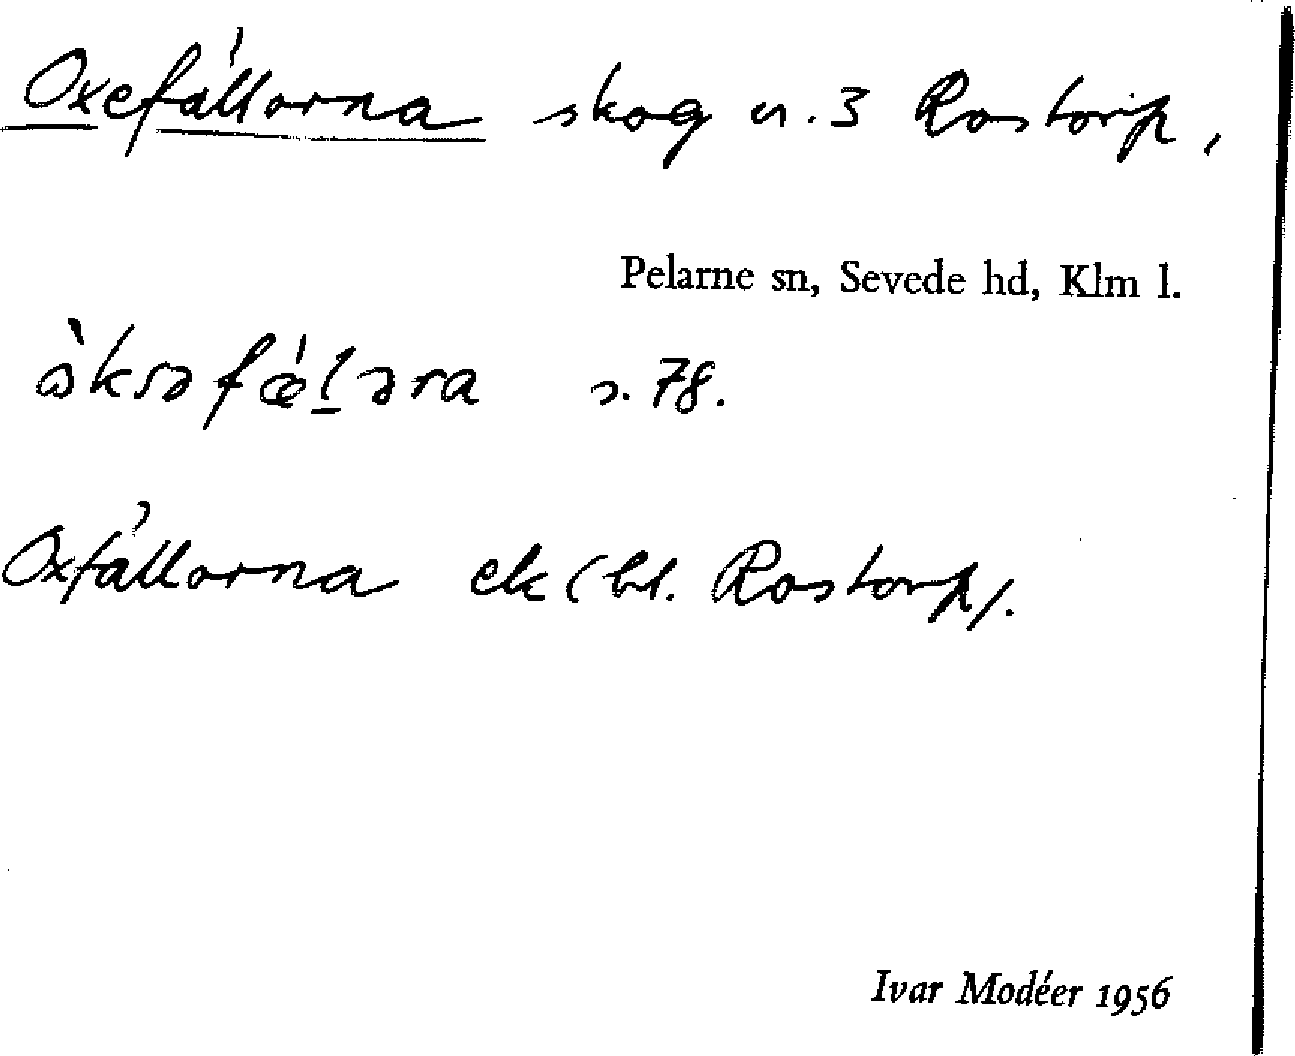 Oxefällorna skog n. 3 Rostorp,
Pelarne sn, Sevede hd, Klm l.
s. 78.
Oxfällorna ek (bl. Rostorp).
Ivar Modéer 1956